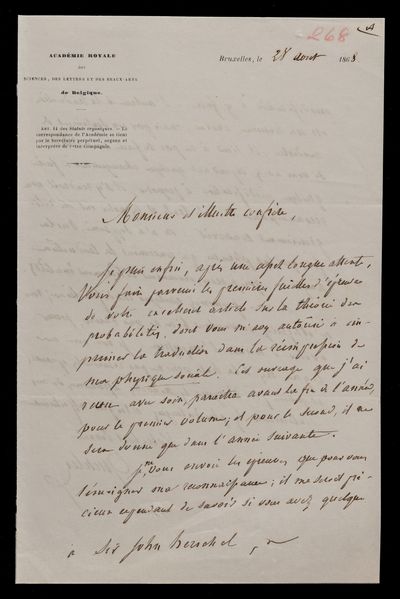 268
ACADÉMIE ROYALE
DES
SCIENCES, DES LETTRES ET DES BEAUX-ARTS
de Belgique.
Bruxelles, le 28 août 1868
ART. 11 des Statuts organiques. — La
correspondance de l'Académie se tient
par le Secrétaire perpétuel, organe et
interprète de cette Compagnie.
Monsieur et illustre confrère,
Je puis enfin, après une assez longue attente,
Vous faire parvenir les premières feuilles d'épreuves
de votre excellent article sur la théorie des
probabilités, dont vous m'avez autorisé à im-
primer la traduction dans la réimpression de
ma physique sociale. Cet ouvrage que j'ai
revu avec soin, paraîtra avant la fin de l'année,
pour le premier volume; et pour le second, il ne
sera donné que dans l'année suivante.
Je vous envoie les épreuves que pour vous
témoigner ma reconnaissance; il me serait pré-
cieux cependant de savoir si vous avez quelque
à Sir John Herschel